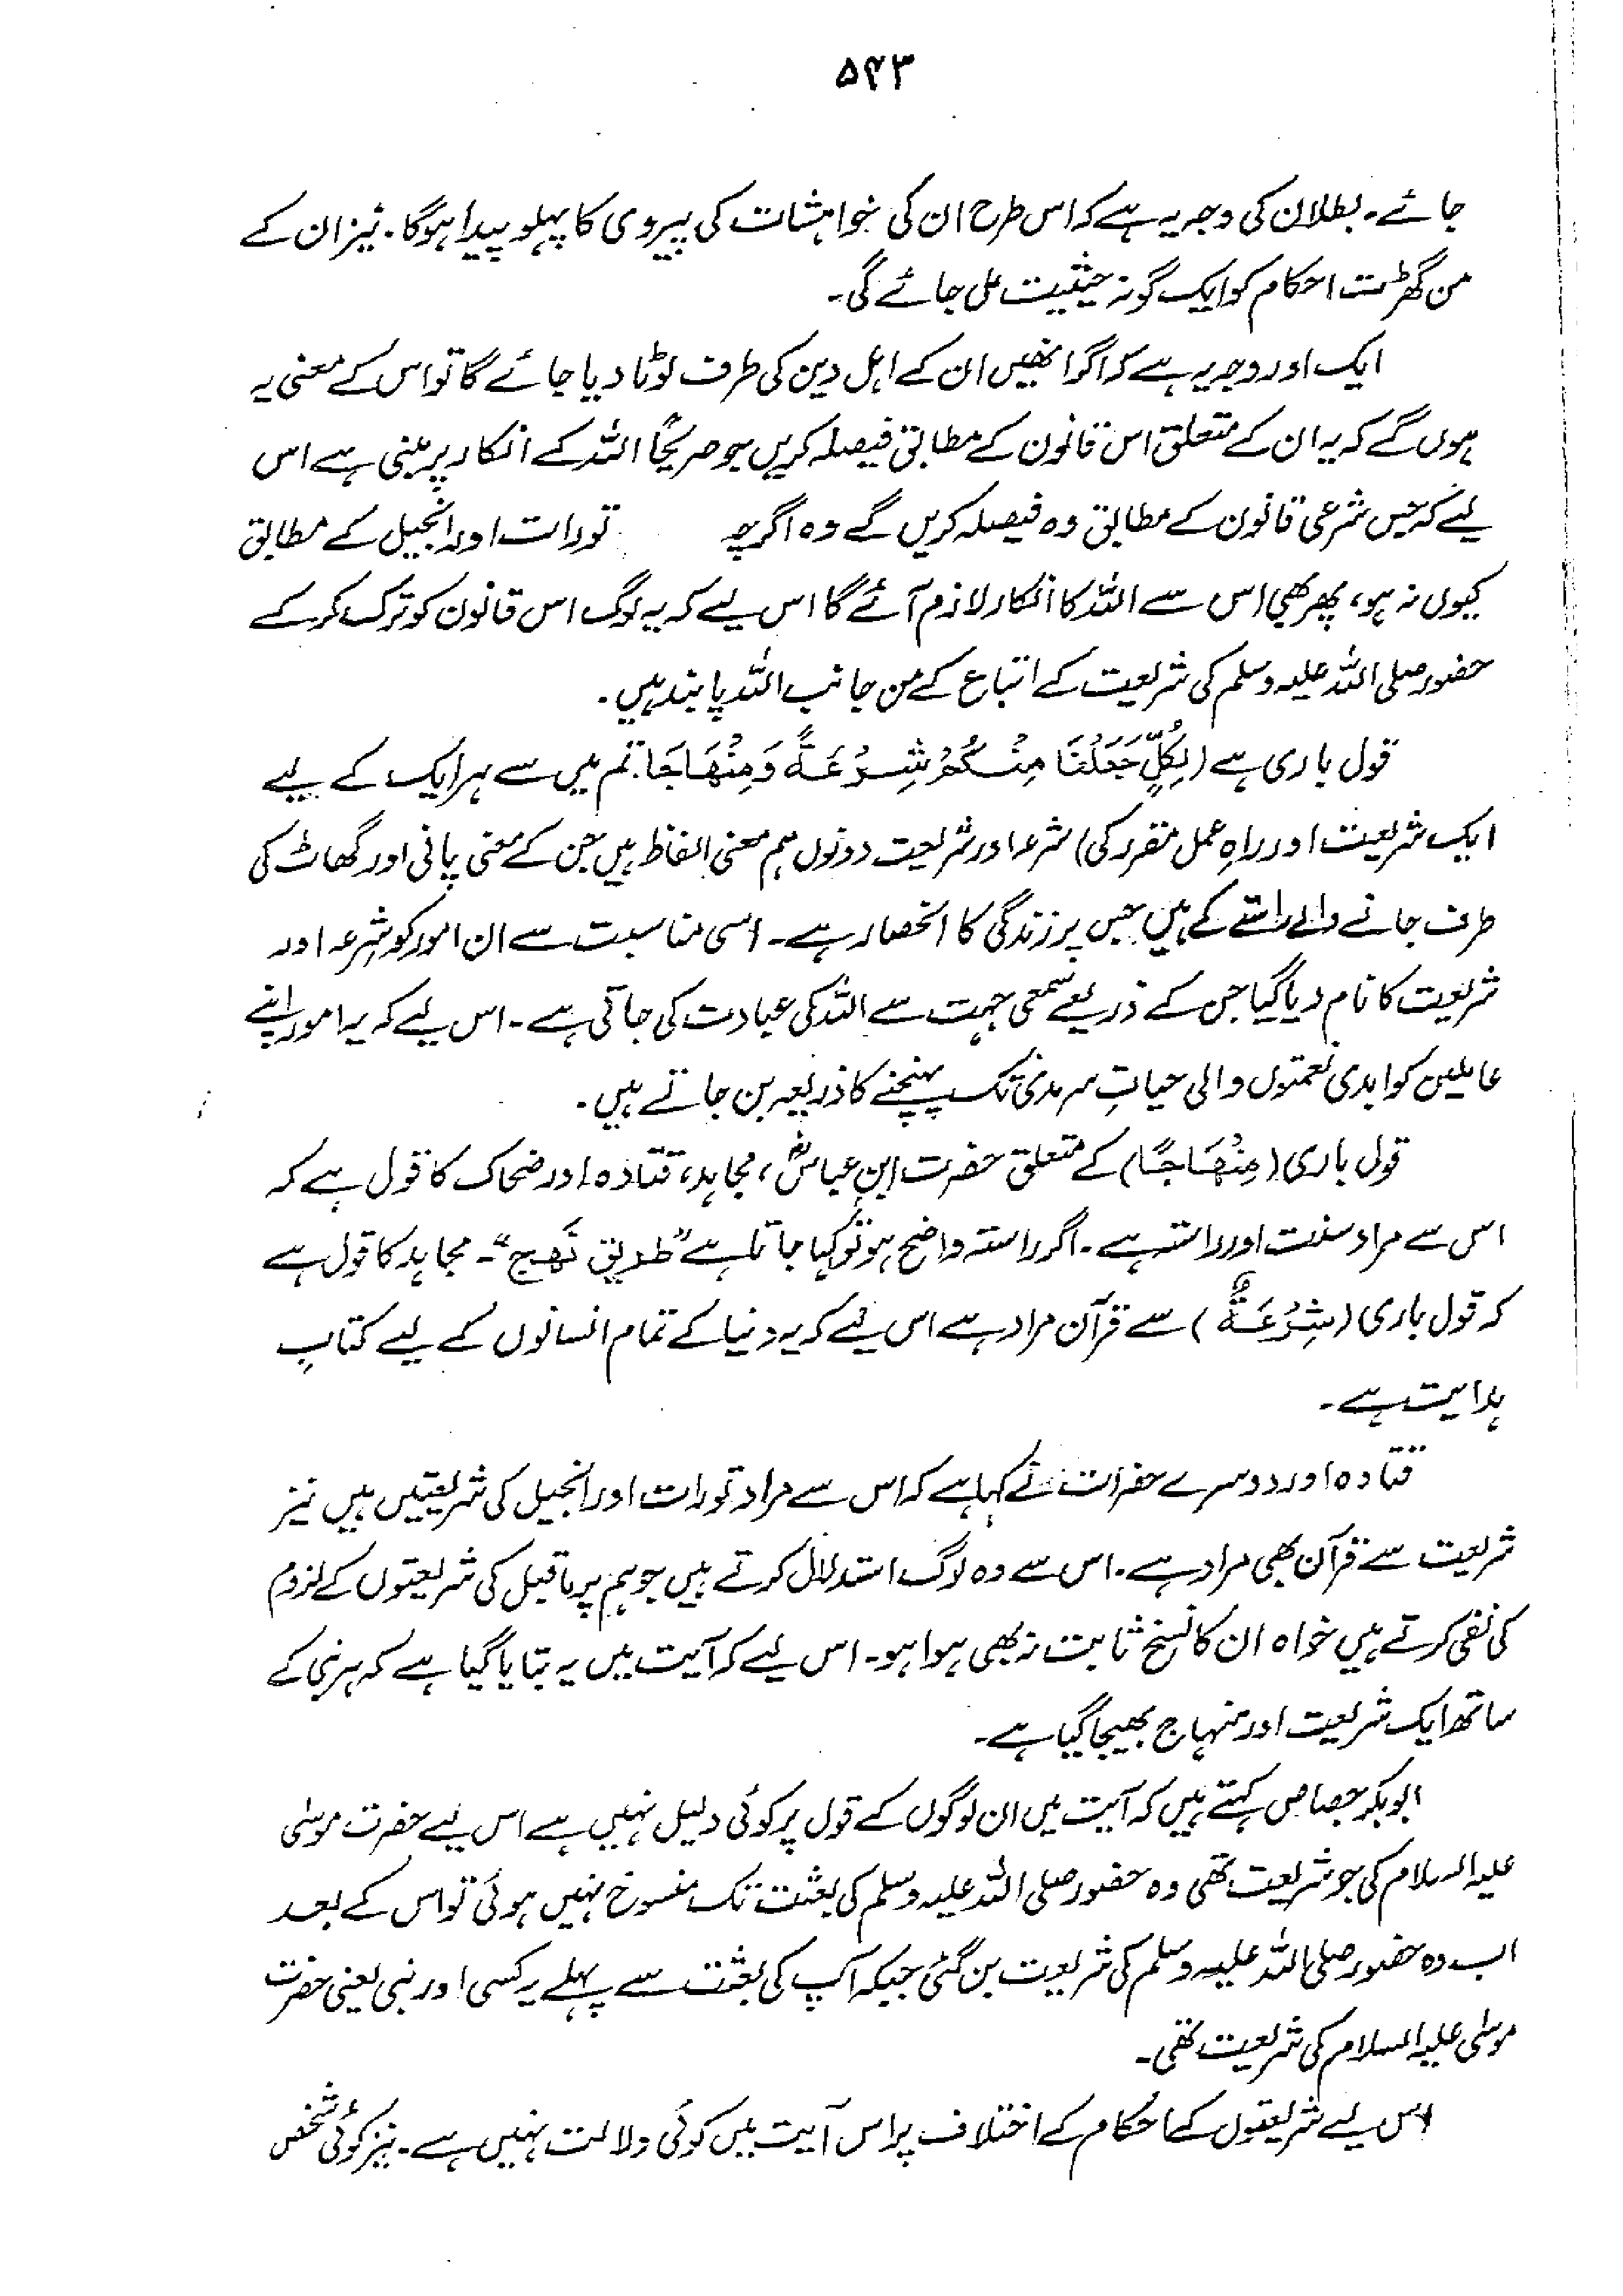 ۵۴۳
جائے۔ بطلان کی وجہ یہ ہے کہ اس طرح ان کی خواہشات کی پیروی کا پہلو پیدا ہوگا۔ نیز ان کے
من گھڑت احکام کو ایک گونہ حیثیت مل جائے گی۔
ایک اور وجہ یہ ہے کہ اگر انھیں ان کے اہل دین کی طرف لوٹا دیا جائے گا تو اس کے معنی یہ
ہوں گے کہ یہ ان کے متعلق اس قانون کے مطابق فیصلہ کریں جو صریحًا اللہ کے انکار پر مبنی ہے اس
لیے کہ جس شرعی قانون کے مطابق وہ فیصلہ کریں گے وہ اگرچہ تورات اور انجیل کے مطابق
کیوں نہ ہو، پھر بھی اس سے اللہ کا انکار لازم آئے گا اس لیے کہ یہ لوگ اس قانون کو ترک کر کے
حضور صلی اللہ علیہ وسلم کی شریعت کے اتباع کے من جانب اللہ پابند ہیں۔
قول باری ہے (لِكُلٍّ جَعَلْنَا مِنْكُمْ شِرْعَةً وَمِنْهَاجًا۔ تم میں سے ہر ایک کے لیے
ایک شریعت اور راہِ عمل مقرر کی) شرعہ اور شریعت دونوں ہم معنی الفاظ ہیں جن کے معنی پانی اور گھاٹ کی
طرف جانے والے راستے کے ہیں جس پر زندگی کا انحصار ہے۔ اسی مناسبت سے ان امور کو شِرعہ اور
شریعت کا نام دیا گیا جن کے ذریعے سمعی جہت سے اللہ کی عبادت کی جاتی ہے۔ اس لیے کہ یہ امور اپنے
عاملین کو ابدی نعمتوں والی حیاتِ سرمدی تک پہنچنے کا ذریعہ بن جاتے ہیں۔
قول باری (مِنْهَاجًا) کے متعلق حضرت ابن عباسؓ، مجاہد، قتادہ اور ضحاک کا قول ہے کہ
اس سے مراد سنت اور راستہ ہے۔ اگر راستہ واضح ہو تو کہا جاتا ہے "طریق نَهج"۔ مجاہد کا قول ہے
کہ قول باری (شِرْعَةً) سے قرآن مراد ہے اس لیے کہ یہ دنیا کے تمام انسانوں کے لیے کتابِ
ہدایت ہے۔
قتادہ اور دوسرے حضرات نے کہا ہے کہ اس سے مراد تورات اور انجیل کی شریعتیں ہیں نیز
شریعت سے قرآن بھی مراد ہے۔ اس سے وہ لوگ استدلال کرتے ہیں جو ہم پر ماقبل کی شریعتوں کے لزوم
کی نفی کرتے ہیں خواہ ان کا نسخ ثابت نہ بھی ہوا ہو۔ اس لیے کہ آیت میں یہ بتایا گیا ہے کہ ہر نبی کے
ساتھ ایک شریعت اور منہاج بھیجا گیا ہے۔
ابوبکر جصاص کہتے ہیں کہ آیت میں ان لوگوں کے قول پر کوئی دلیل نہیں ہے اس لیے حضرت موسٰی
علیہ السلام کی جو شریعت تھی وہ حضور صلی اللہ علیہ وسلم کی بعثت تک منسوخ نہیں ہوئی تو اس کے بعد
اب وہ حضور صلی اللہ علیہ وسلم کی شریعت بن گئی جبکہ آپ کی بعثت سے پہلے یہ کسی اور نبی یعنی حضرت
موسٰی علیہ السلام کی شریعت تھی۔
اس لیے شریعتوں کے احکام کے اختلاف پر اس آیت میں کوئی دلالت نہیں ہے۔ نیز کوئی شخص